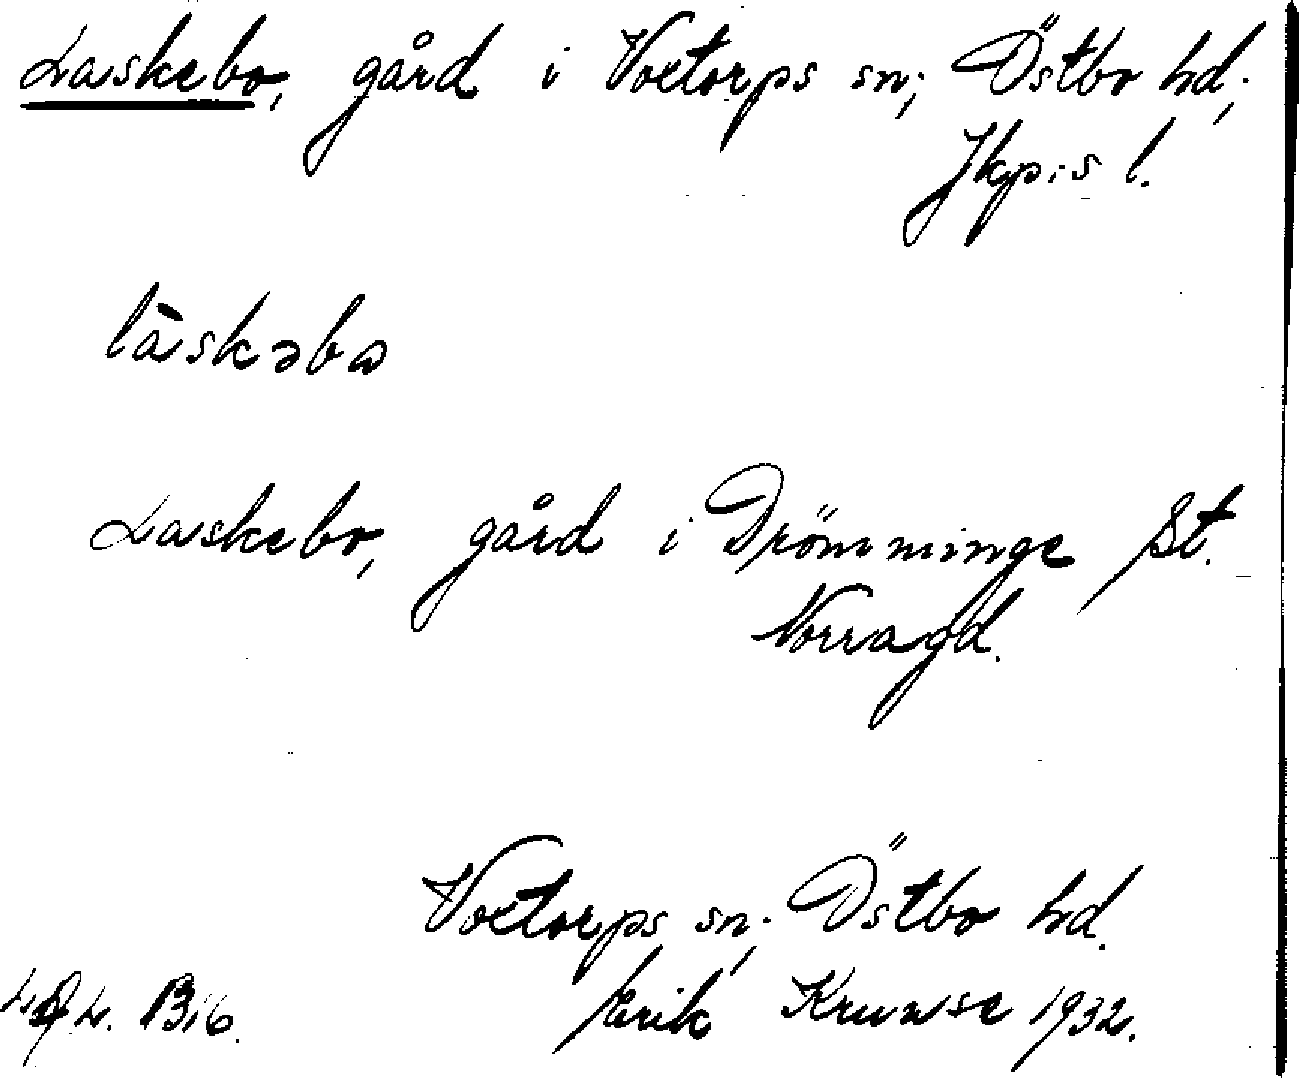 Laskebo, gård i Voxtorps sn; Östbo hd;
Jkp:s l.
làskəbω
Laskebo, gård i Drömminge St.
Norragd.
Voxtorps sn; Östbo hd.
Erik Kruuse 1932.
B:6.